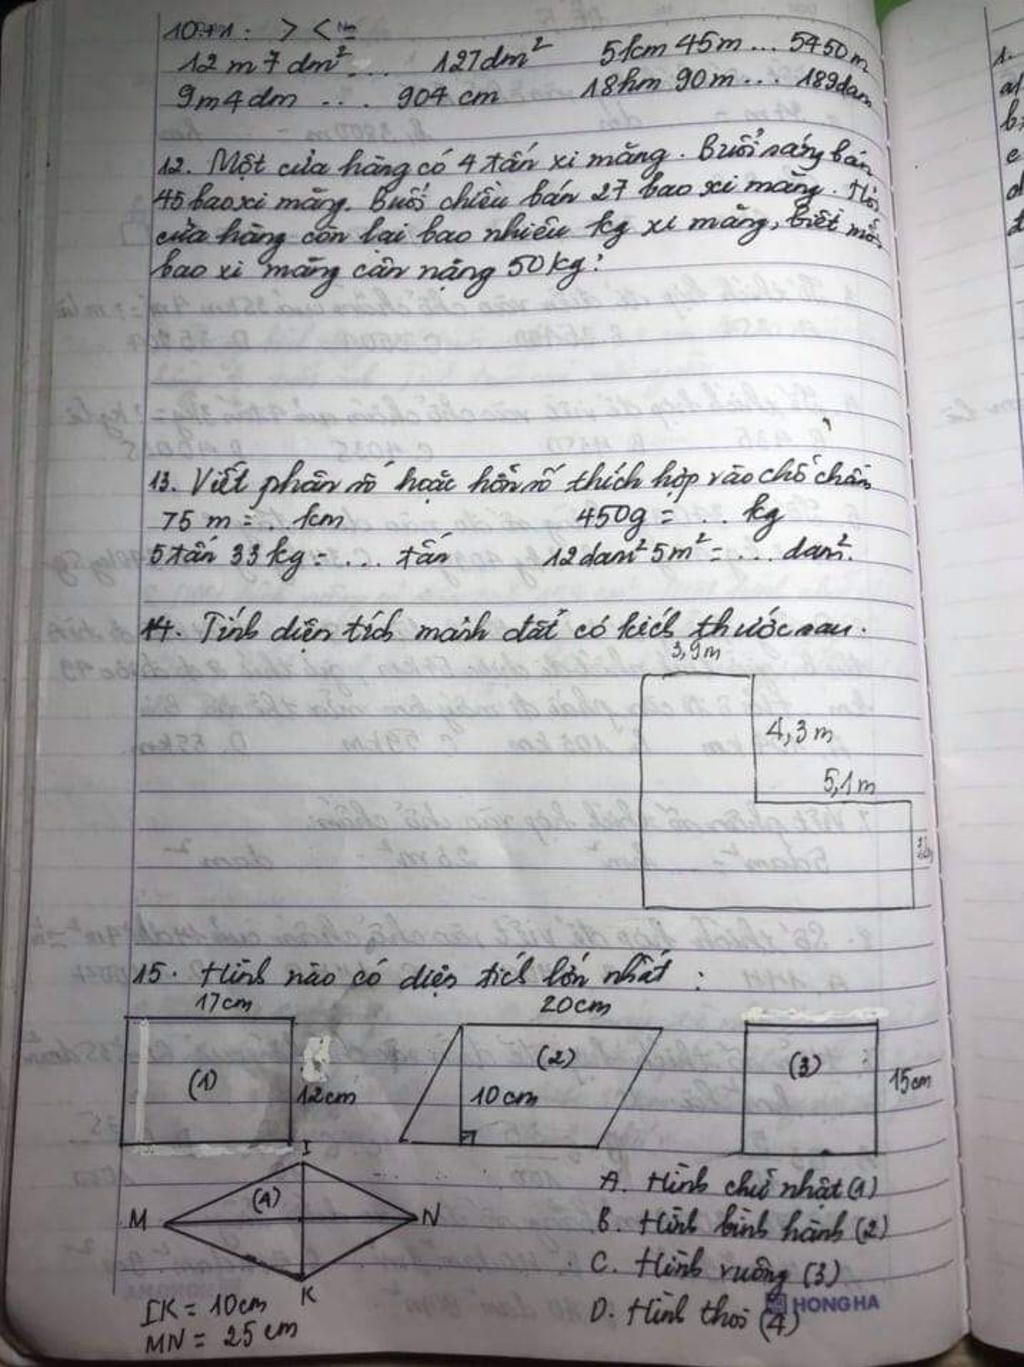 > < =
12 m 7 dm² ... 127 dm² 5km 45m ... 5450m
9m4dm ... 904 cm 18hm 90m ... 189dam
12. Một cửa hàng có 4 tấn xi măng. Buổi sáng bán
45 bao xi măng. Buổi chiều bán 27 bao xi măng. Hỏi
cửa hàng còn lại bao nhiêu kg xi măng, biết mỗi
bao xi măng cân nặng 50kg?
13. Viết phân số hoặc hỗn số thích hợp vào chỗ chấm
75 m = . km 450g = .. kg
5 tấn 33 kg = ... tấn 12dam² 5m² = ... dam².
14. Tính diện tích mảnh đất có kích thước sau.
3,9m
4,3m
5,1m
15. Hình nào có diện tích lớn nhất :
17cm 20cm
(1) (2) (3)
12cm 10cm 15cm
I
(4)
M N
K
A. Hình chữ nhật (1)
B. Hình bình hành (2)
C. Hình vuông (3)
D. Hình thoi (4)
IK = 10cm
MN = 25cm
HONG HA